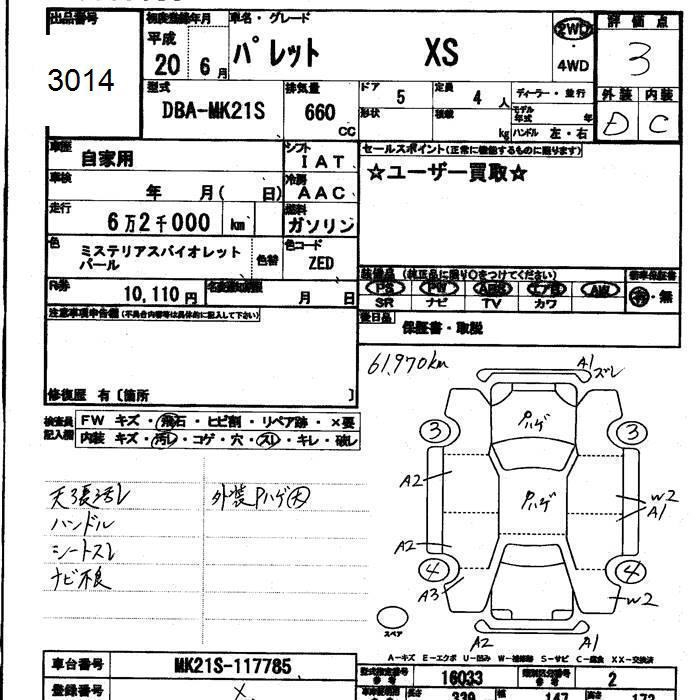 出品番号
3014
初度登録年月
平成
20 6月
車名・グレード
パレット XS
2WD
・
4WD
評価点
3
外装 内装
D C
型式
DBA-MK21S
排気量
660
CC
ドア
5
定員
4 人
形状
積載
kg
ディーラー・並行
モデル年式 年
ハンドル 左・右
車歴
自家用
シフト
IAT
車検
年 月( 日)
冷房
AAC
走行
6万2千000 km
燃料
ガソリン
色
ミステリアスバイオレット
パール
色替
色コード
ZED
R券
10,110円
名変期限
月 日
セールスポイント(正常に機能するものに限ります)
☆ユーザー買取☆
装備品 (純正品に限り○をつけてください)
PS PW ABS エアB AW
SR ナビ TV カワ
新車保証書
有・無
後日品
保証書・取説
注意事項申告欄 (不具合内容等は具体的に記入して下さい)
修復歴 有〔箇所 〕
検査員記入欄
FW キズ・飛石・ヒビ割・リペア跡・×要
内装 キズ・汚レ・コゲ・穴・スレ・キレ・破レ
天張汚レ
ハンドル
シートスレ
ナビ不良
外装Pハゲ大
61,970km
A1
ズレ
Pハゲ
3
3
A2
Pハゲ
W2
A1
A2
4
4
A3
W2
スペア
A2
A1
A-キズ E-エクボ U-凹み W-補修跡 S-サビ C-腐食 XX-交換済
車台番号
MK21S-117785
型式指定番号
16033
類別区分番号
2
登録番号
長さ
339
幅
147
高さ
173